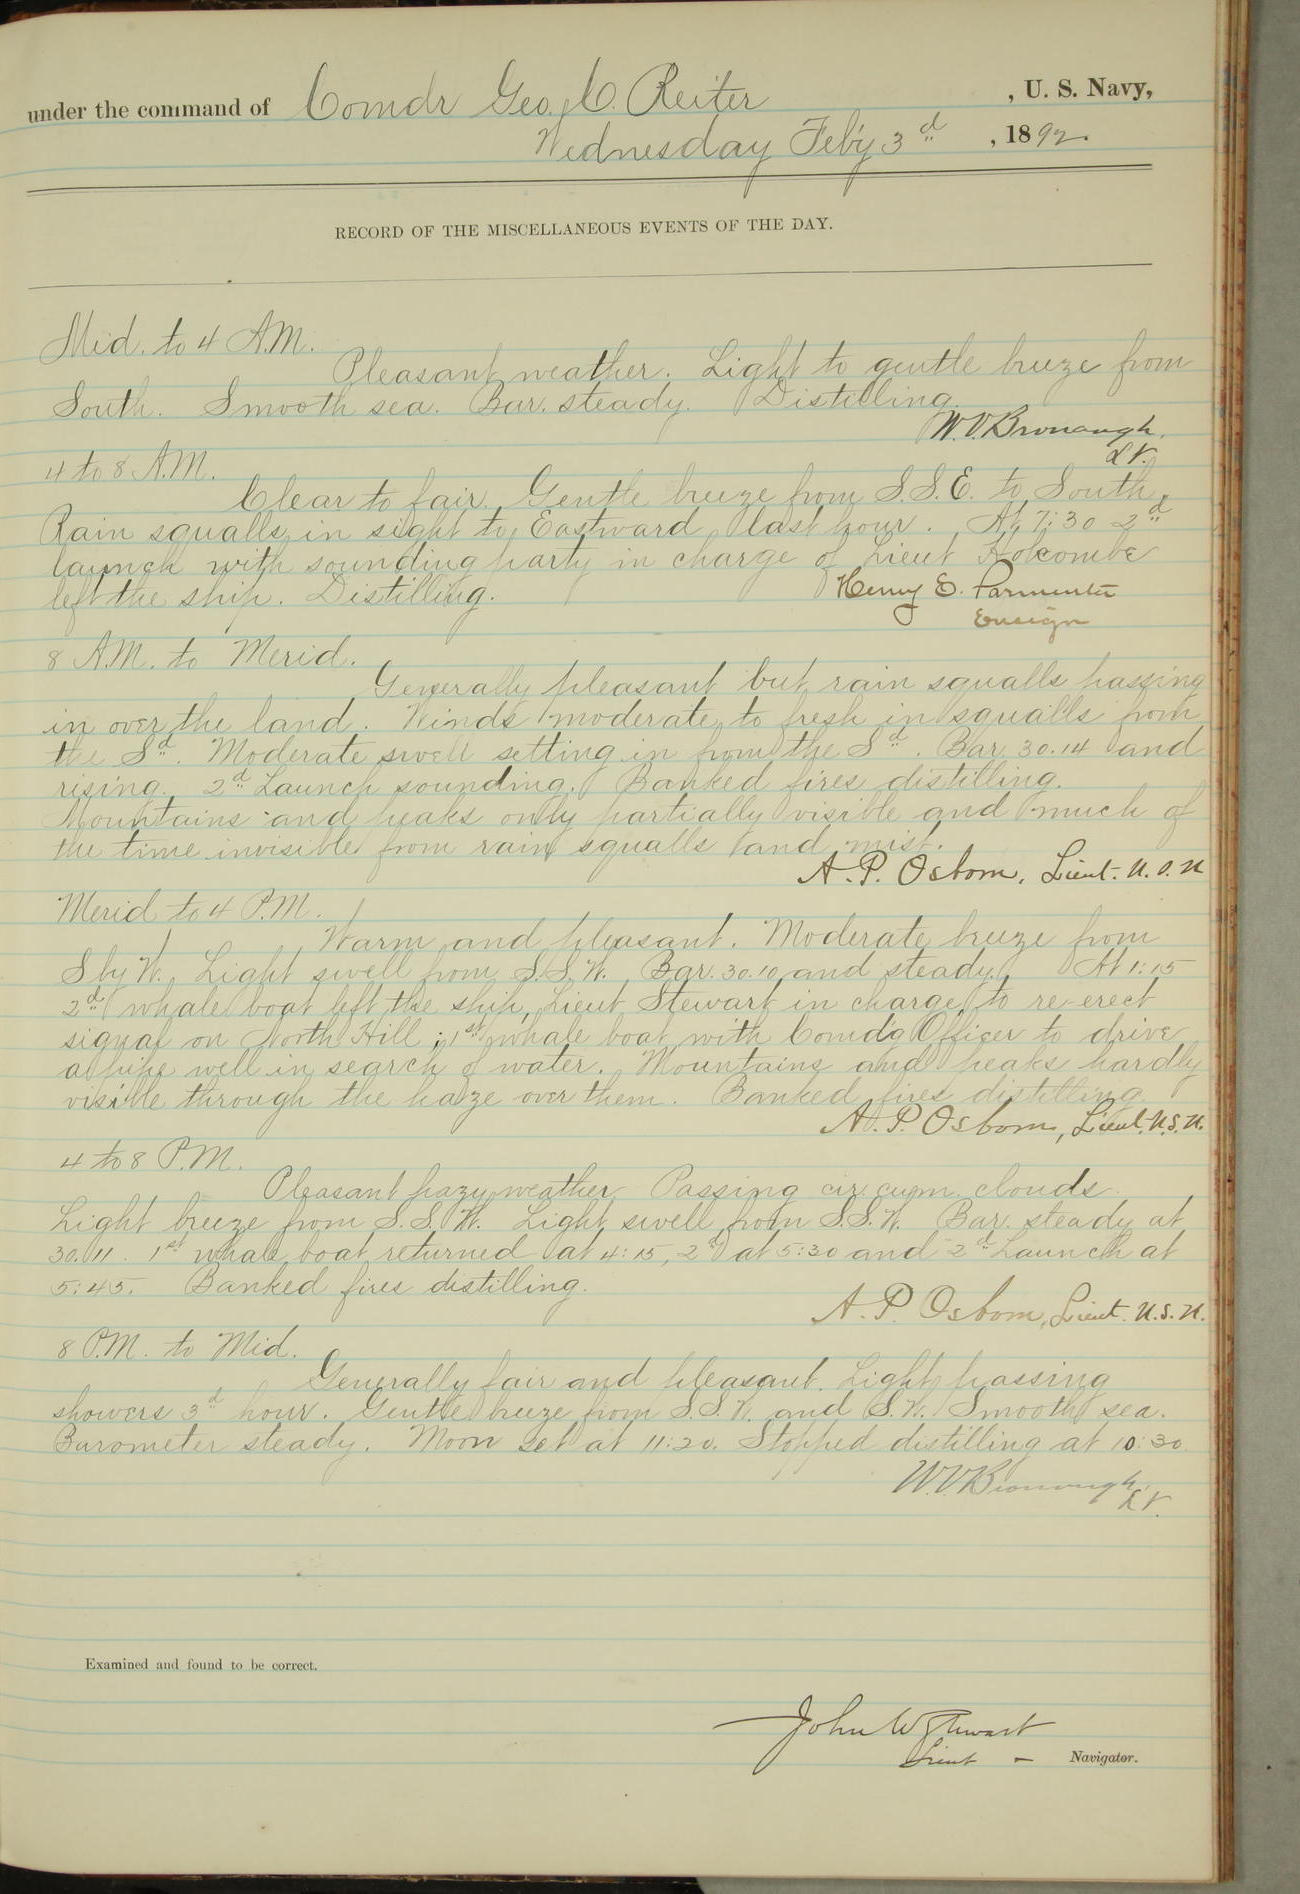 under the command of Comdr Geo. C. Reiter , U. S. Navy,
Wednesday Feb'y 3d , 1892.
RECORD OF THE MISCELLANEOUS EVENTS OF THE DAY.
Mid. to 4 A.M.
Pleasant weather. Light to gentle breeze from
South. Smooth sea. Bar. steady. Distilling.
W.V. Bronaugh,
Lt.
4 to 8 A.M.
Clear to fair. Gentle breeze from S.S.E. to South.
Rain squalls in sight to Eastward last hour. At 7:30 2d
launch with sounding party in charge of Lieut Holcombe
left the ship. Distilling.
Henry E. Parmenter
Ensign
8 A.M. to Merid.
Generally pleasant but rain squalls passing
in over the land. Winds moderate to fresh in squalls from
the Sd. Moderate swell setting in from the Sd. Bar. 30.14 and
rising. 2d Launch sounding. Banked fires distilling.
Mountains and peaks only partially visible and much of
the time invisible from rain squalls and mist.
A. P. Osborn, Lieut. U.S.N
Merid to 4 P.M.
Warm and pleasant. Moderate breeze from
S by W. Light swell from S.S.W. Bar. 30.10 and steady. At 1:15
2d whale boat left the ship, Lieut Stewart in charge, to re-erect
signal on North Hill; 1st whale boat with Comd'g Officer to drive
a pipe well in search of water. Mountains and peaks hardly
visible through the haze over them. Banked fires distilling.
A. P. Osborn, Lieut. U.S.N.
4 to 8 P.M.
Pleasant hazy weather. Passing cir. cum. clouds.
Light breeze from S.S.W. Light swell from S.S.W. Bar. steady at
30.11. 1st whale boat returned at 4:15, 2d at 5:30 and 2d Launch at
5:45. Banked fires distilling.
A. P. Osborn, Lieut. U.S.N.
8 P.M. to Mid.
Generally fair and pleasant. Light passing
showers 3d hour. Gentle breeze from S.S.W. and S.W. Smooth sea.
Barometer steady. Moon set at 11:20. Stopped distilling at 10:30
W.V. Bronaugh,
Lt.
Examined and found to be correct.
John W Stewart
Lieut – Navigator.